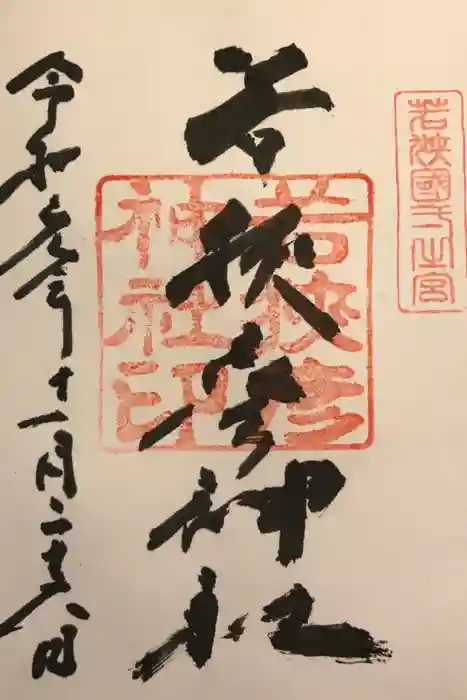 若狹國一之宮
若狹彦神社
若狹彦
神社印
令和元年十一月二十八日